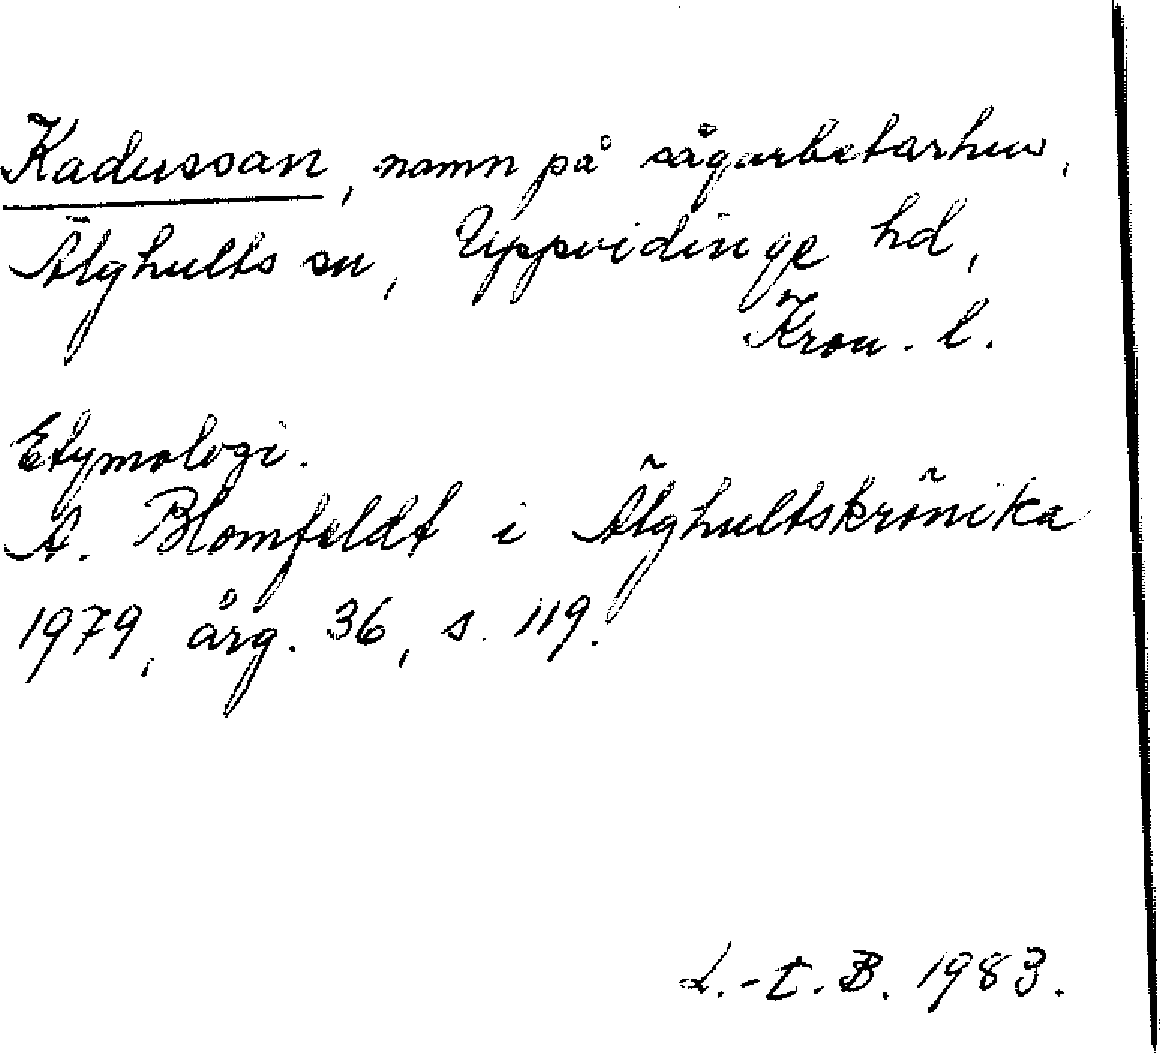 Kadussan, namn på sågarbetarhus,
Älghults sn, Uppvidinge hd,
Kron. l.
Etymologi.
A. Blomfeldt i Älghultskrönika
1979, årg. 36, s. 119.
L.-E. B. 1983.